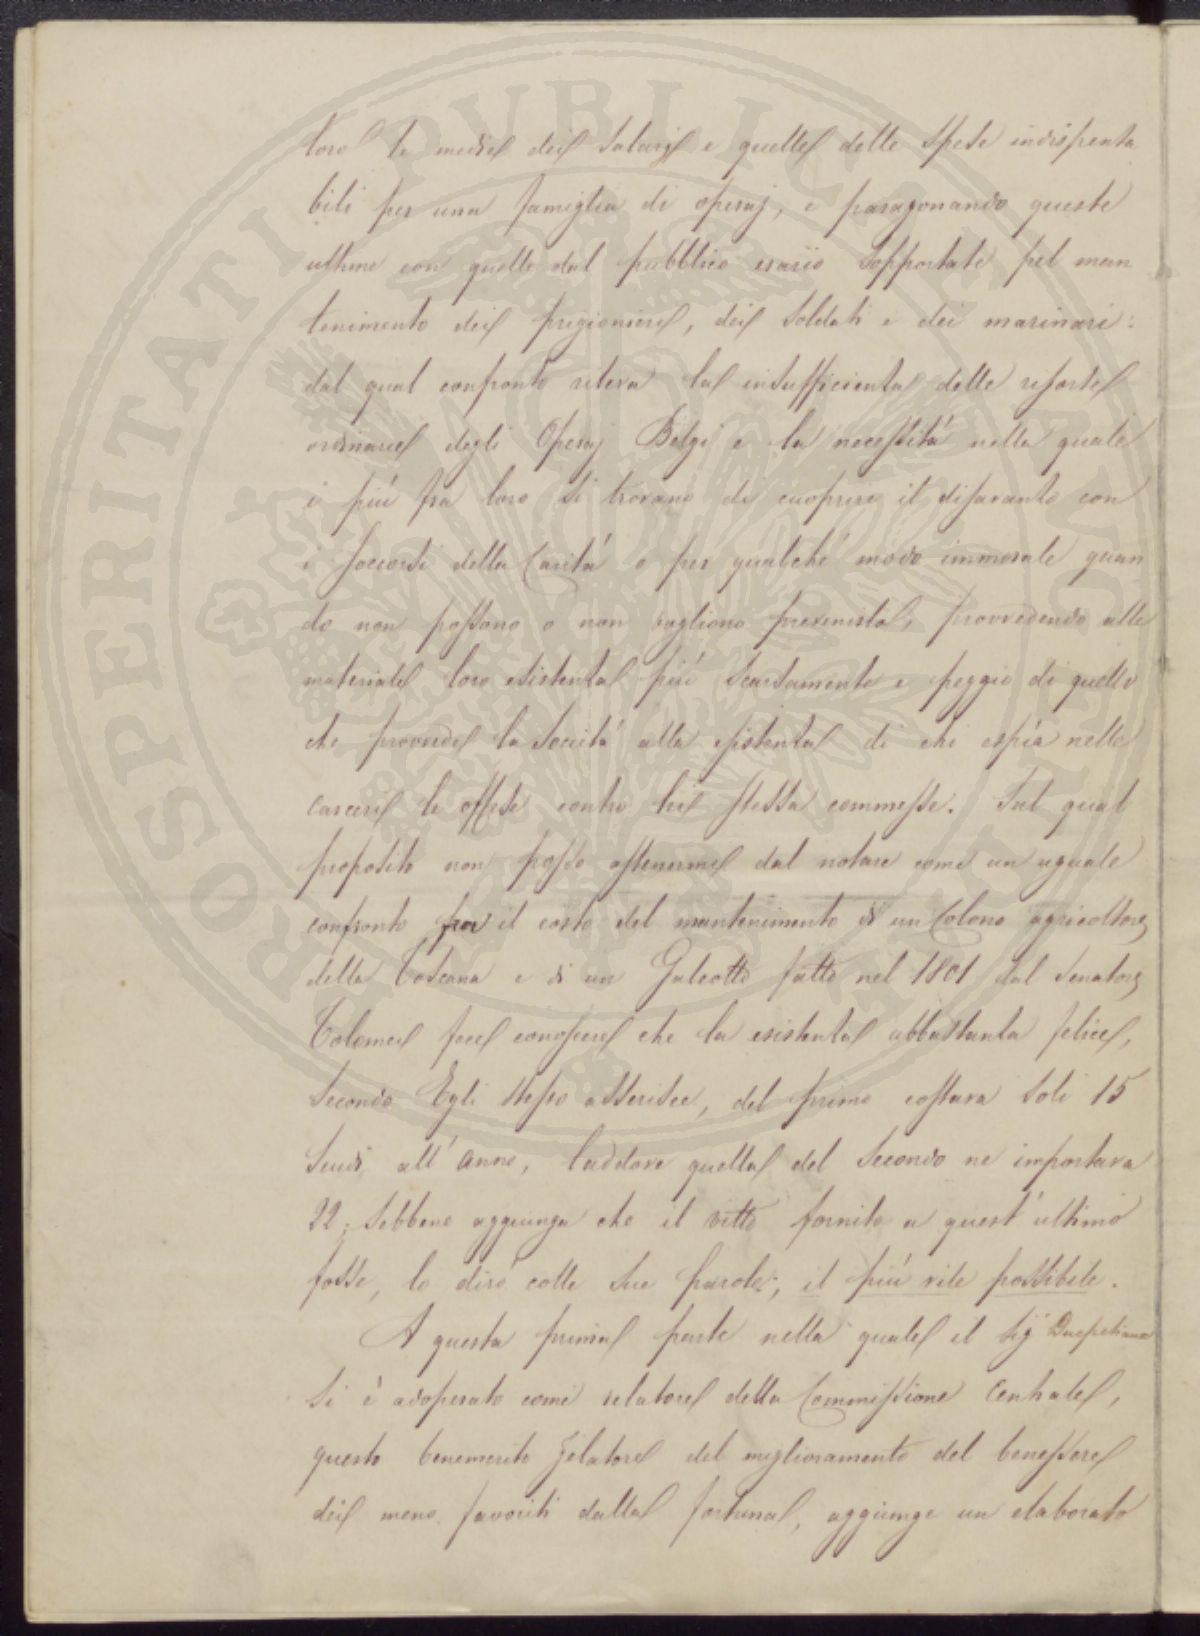 loro le medie dei salarj e quelle delle spese indispensa
bili per una famiglia di operaj, e paragonando queste
ultime con quelle dal pubblico erario sopportate pel man
tenimento dei prigionieri, dei soldati e dei marinari:
dal qual confronto rileva la insufficienza delle risorse
ordinarie degli Operaj Belgi e la necessità nella quale
i più fra loro si trovano di cuoprire il disavanzo con
i soccorsi della Carità o per qualche modo immorale quan
do non possono o non vogliono prevenirla, provvedendo alla
materiale loro esistenza più scarsamente e peggio di quello
che provvede la Società alla esistenza di chi espia nelle
carceri le offese contro lei stessa commesse. Sul qual
proposito non posso astenermi dal notare come un uguale
confronto fra il costo del mantenimento di un Colono agricoltore
della Toscana e di un Galeotto fatto nel 1801 dal Senatore
Tolomei fece conoscere che la esistenza abbastanza felice,
secondo Egli stesso asserisce, del primo costava soli 15
Scudi all'anno, laddove quella del secondo ne importava
22; sebbene aggiunga che il vitto fornito a quest'ultimo
fosse, lo dirò colle sue parole, il più vile possibile.
A questa prima parte nella quale il Sig Ducpetiaux
si è adoperato come relatore della Commissione Centrale,
questo benemerito zelatore del miglioramento del benessere
dei meno favoriti dalla fortuna, aggiunge un elaborato
PROSPERITATI PVBLICAE